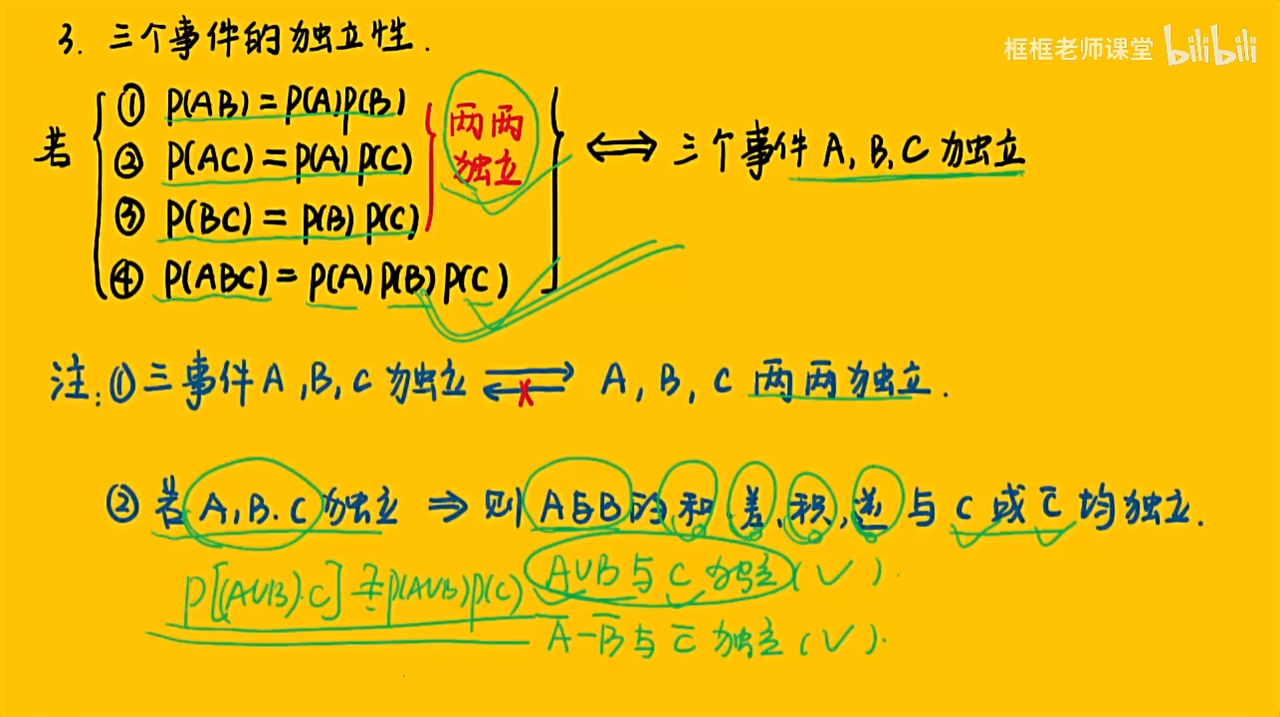 3. 三个事件的独立性.
框框老师课堂 bilibili
若
① P(AB)=P(A)P(B)
② P(AC)=P(A)P(C)
③ P(BC)=P(B)P(C)
④ P(ABC)=P(A)P(B)P(C)
两两
独立
⟺ 三个事件 A, B, C 独立
注:①三事件A,B,C独立 ⇄ x A, B, C 两两独立.
② 若A,B.C独立 ⇒ 则A与B的和.差.积,逆与C或C̅均独立.
P[(A∪B)·C] P(A∪B)P(C) A∪B与C独立(√).
A̅-B̅与C̅独立(√).